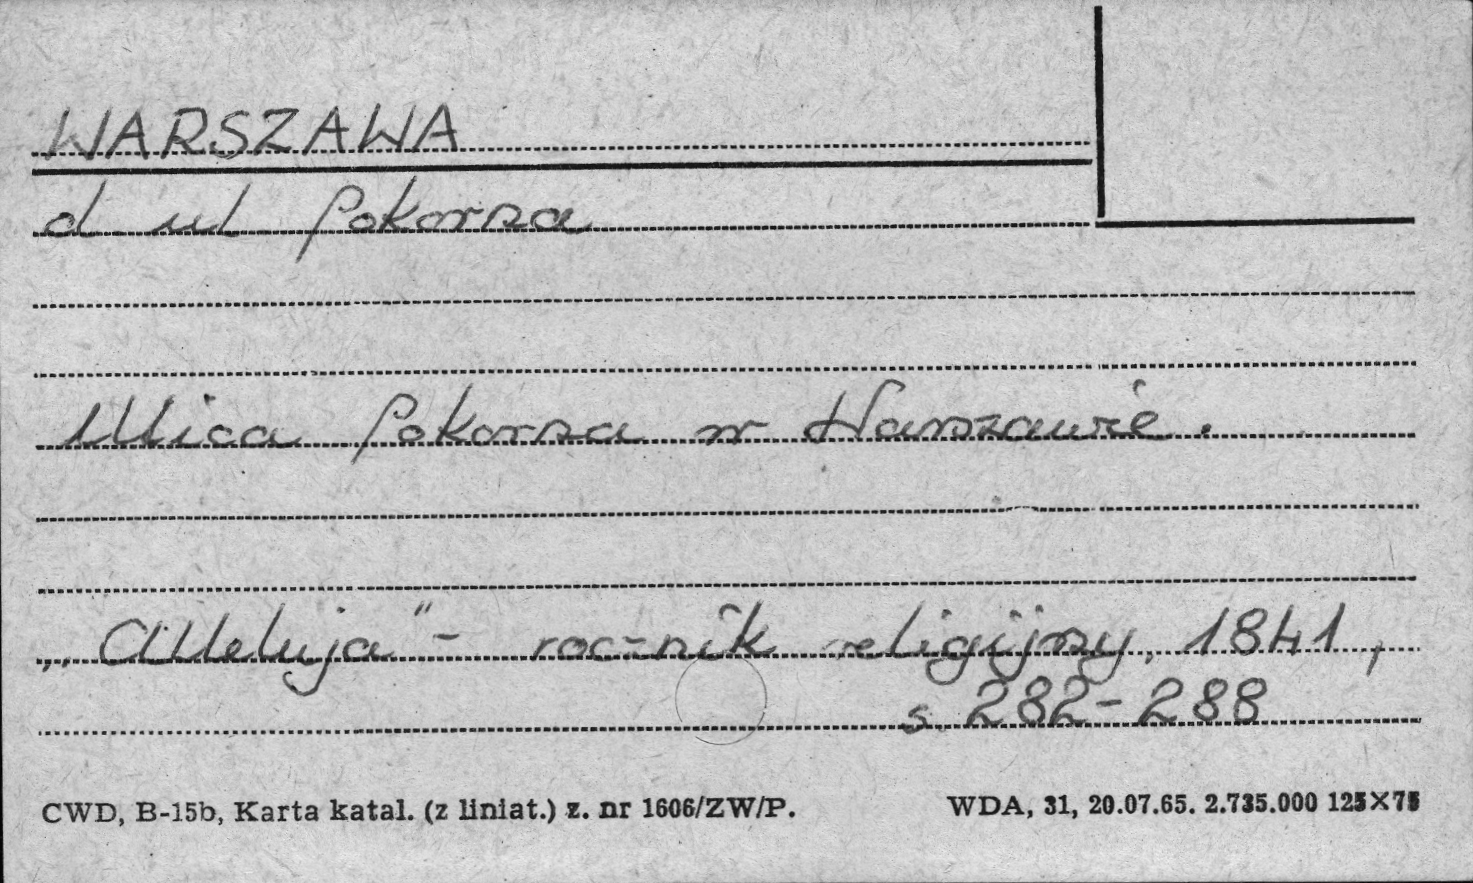 WARSZAWA
d ul Pokorna
Ulica Pokorna w Warszawie.
„Alleluja" - rocznik religijny, 1841,
s. 282-288
CWD, B-15b, Karta katal. (z liniat.) z. nr 1606/ZW/P. WDA, 31, 20.07.65. 2.735.000 125×75